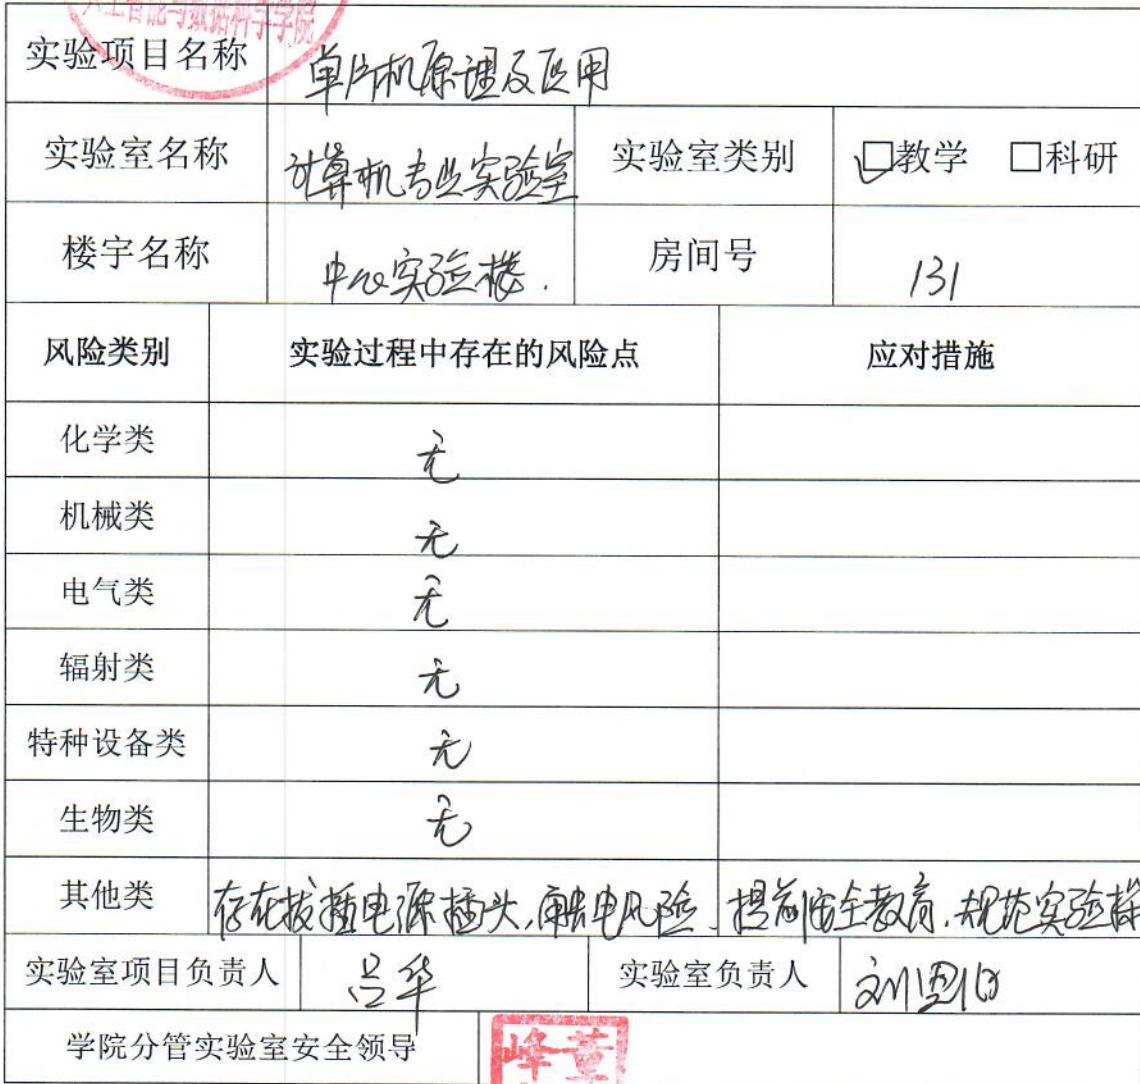 人工智能与数据科学学院
实验项目名称 单片机原理及应用
实验室名称 计算机专业实验室 实验室类别 ☑教学 □科研
楼宇名称 中心实验楼. 房间号 131
风险类别 实验过程中存在的风险点 应对措施
化学类 无
机械类 无
电气类 无
辐射类 无
特种设备类 无
生物类 无
其他类 存在拔插电源插头,触电风险. 提前安全教育.规范实验操
实验室项目负责人 吕华 实验室负责人 刘恩伯
学院分管实验室安全领导 峰董